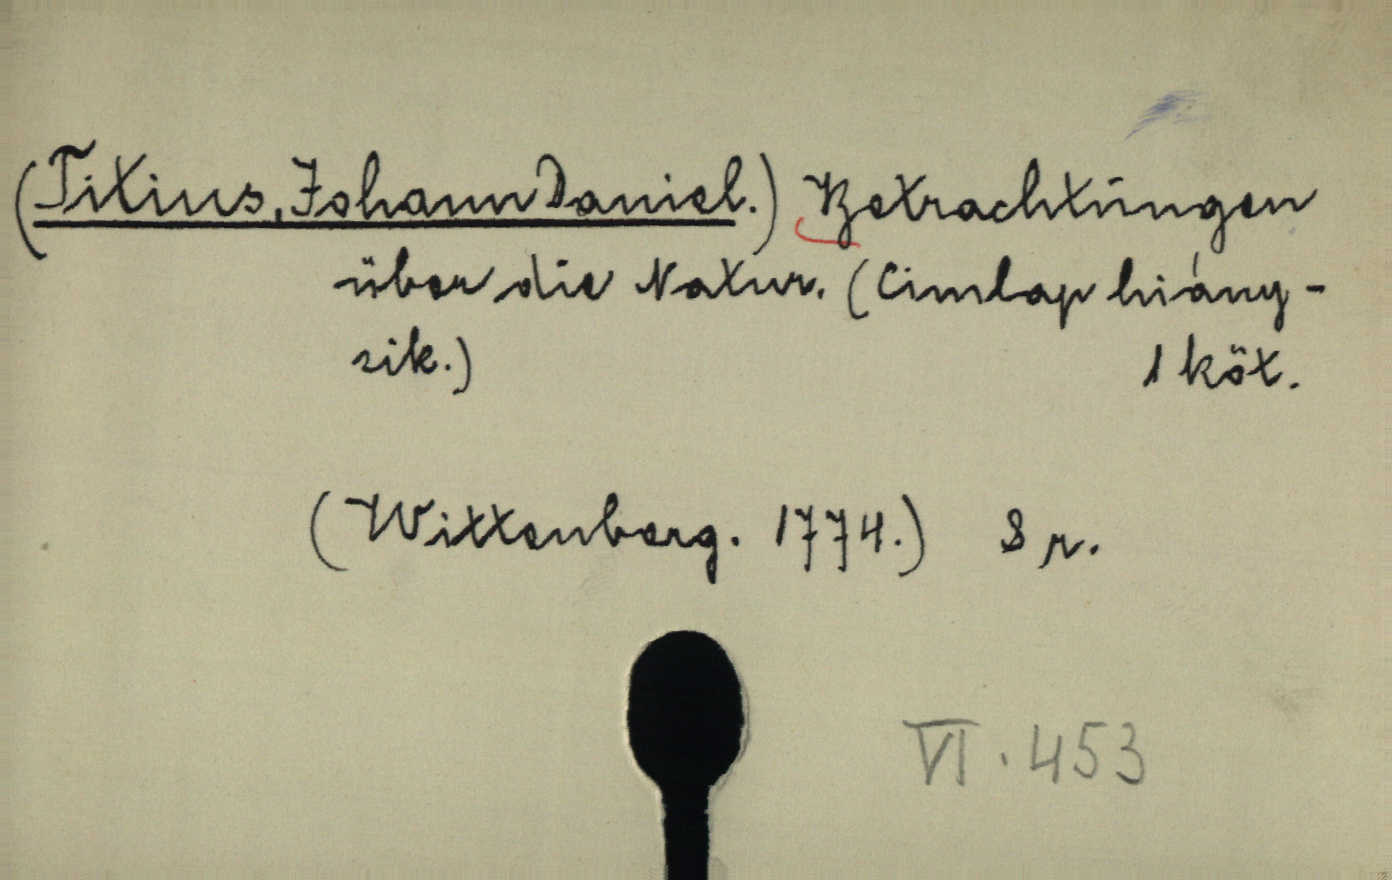 (Titius, Johann Daniel.) Betrachtungen
über die Natur. (Cimlap hiány-
zik.) 1 köt.
(Wittenberg. 1774.) 8 r.
VI. 453